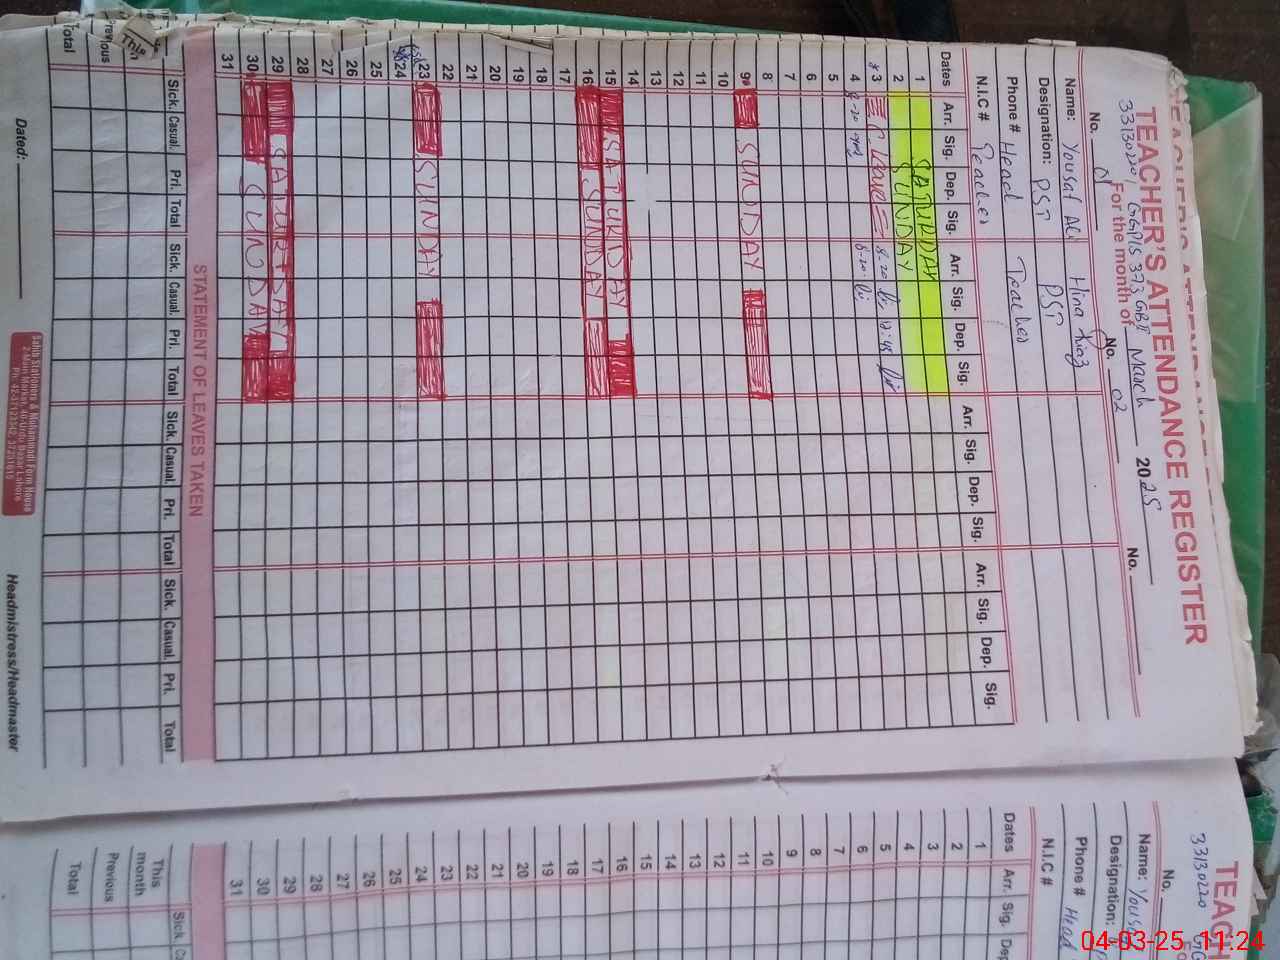 TEACHER'S ATTENDANCE REGISTER
33130220 GGPIS 373 GB II
For the month of March 2025
No. No. 02 No.
Name: Yousaf Ali Hina Riaz
Designation: PST PST
Phone # Head Teacher
N.I.C # Teacher
Dates Arr. Sig. Dep. Sig. Arr. Sig. Dep. Sig. Arr. Sig. Dep. Sig. Arr. Sig. Dep. Sig.
1 SATURDAY
2 SUNDAY
3 Leave 8-20 12:45
4 8-20 8-20
5
6
7
8
9 SUNDAY
10
11
12
13
14
15 SATURDAY
16 SUNDAY
17
18
19
20
21
22
23 SUNDAY
24
25
26
27
28
29 SATURDAY
30 SUNDAY
31
STATEMENT OF LEAVES TAKEN
Sick. Casual. Pri. Total Sick. Casual. Pri. Total Sick. Casual. Pri. Total Sick. Casual. Pri. Total
This
Total
Dated:
Headmistress/Headmaster
TEACH
33130220
No.
Name: Yous
Designation:
Phone # Head
N.I.C #
Dates Arr. Sig. Dep
1
2
3
4
5
6
7
8
9
10
11
12
13
14
15
16
17
18
19
20
21
22
23
24
25
26
27
28
29
30
31
Sick.
This month
Previous
Total
04-03-25 11:24